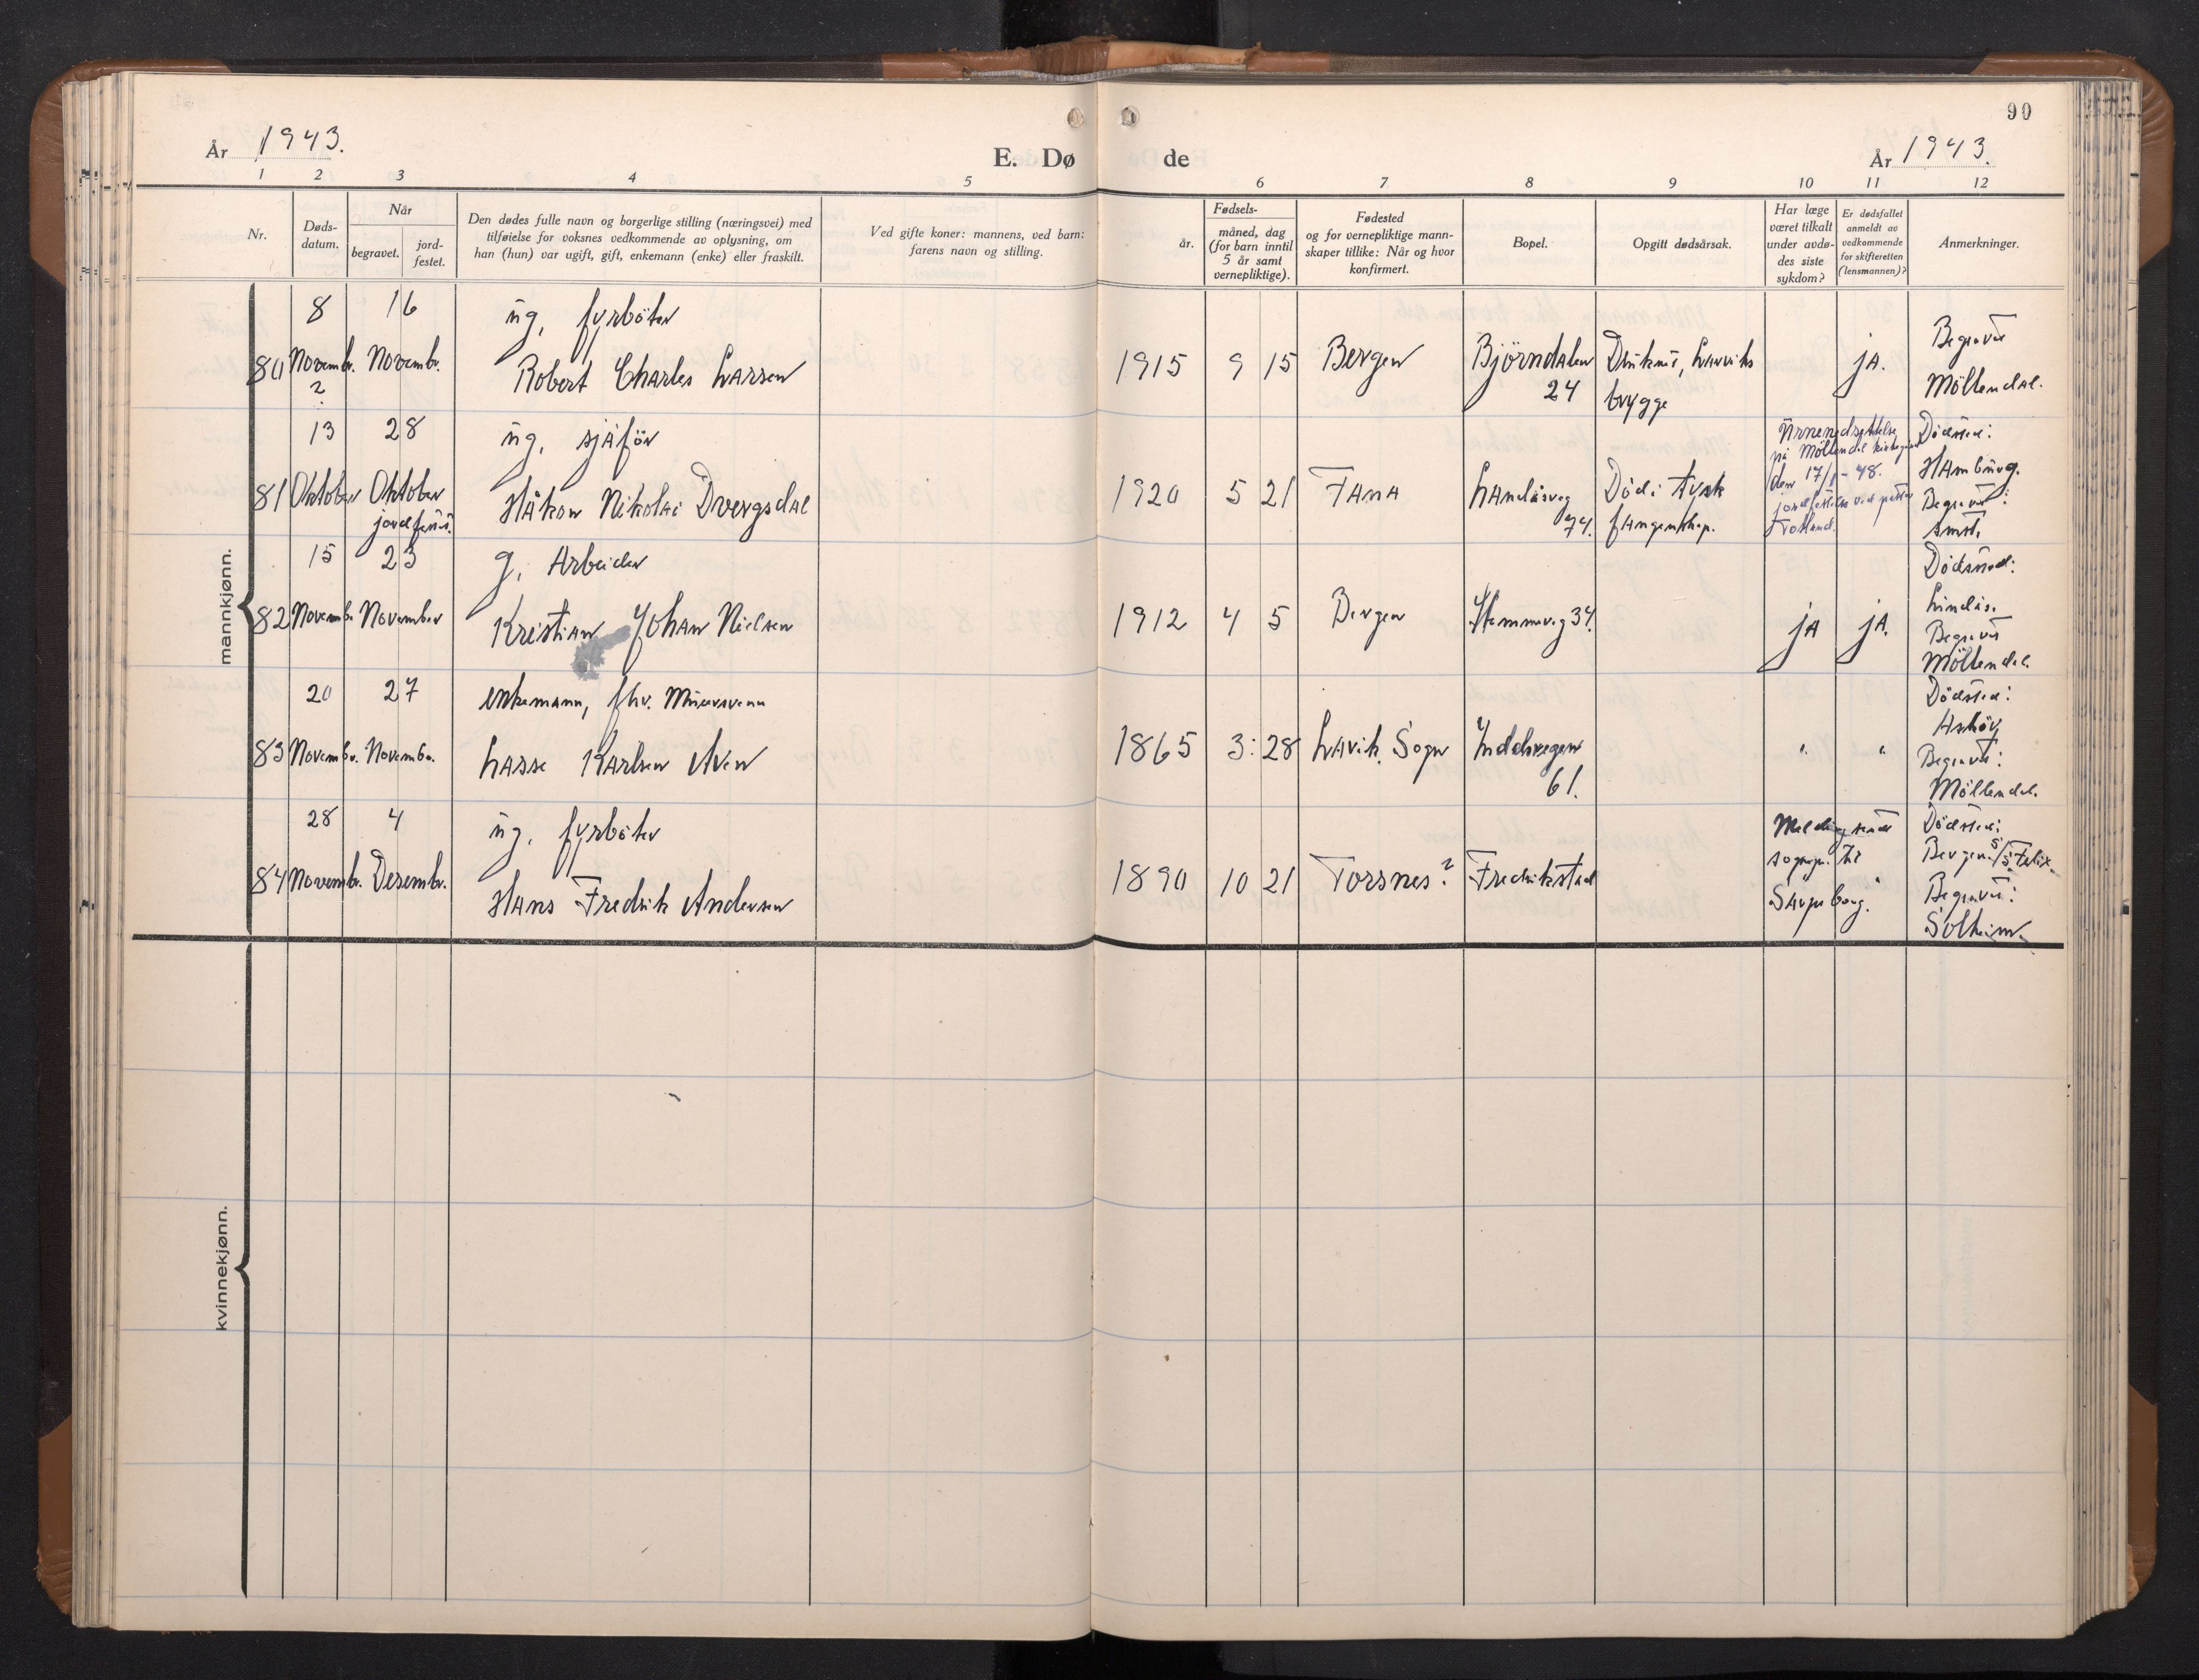 90
År 1943.
E. Dø
de
År 1943.
1 2 3 4 5 6 7 8 9 10 11 12
Nr.
Døds-
datum.
Når
begravet.
jord-
festet.
Den dødes fulle navn og borgerlige stilling (næringsvei) med
tilføielse for voksnes vedkommende av oplysning, om
han (hun) var ugift, gift, enkemann (enke) eller fraskilt.
Ved gifte koner: mannens, ved barn:
farens navn og stilling.
Fødsels-
år.
måned, dag
(for barn inntil
5 år samt
vernepliktige).
Fødested
og for vernepliktige mann-
skaper tillike: Når og hvor
konfirmert.
Bopel.
Opgitt dødsårsak.
Har læge
været tilkalt
under avdø-
des siste
sykdom?
Er dødsfallet
anmeldt av
vedkommende
for skifteretten
(lensmannen)?
Anmerkninger.
mannkjønn.
80
8
Novembr.
?
16
Novembr.
ug. fyrböter
Robert Charles Larsen
1915 9 15
Bergen
Björndalen
24
Druknet, Laxviks
brygge
ja.
Begravet
Möllendal.
81
13
Oktober
28
Oktober
jordfestet.
ug. sjåför
Håkon Nikolai Dvergsdal
1920 5 21
Fana
Landåsveg
74.
Död i tysk
fangenskap.
Urnenedsettelse
på Möllendal kirkegård
den 17/1-48.
jordfestelse ved pastor
Dödsted:
Hamburg.
Begravet:
smst.
82
15
Novembr.
23
November
g. Arbeider
Kristian Johan Nielsen
1912 4 5
Bergen
34.
ja
ja.
Dödsted:
Lindås.
Begravet
Möllendal.
83
20
Novembr.
27
Novembr.
enkemann, fhv. Murersvenn
Lasse Karlsen Aven
1865 3: 28
Lavik, Sogn
Inddalsvegen
61.
"
"
Dödsted:
Askøy
Begravet:
Möllendal.
84
28
Novembr.
4
Desembr.
ug. fyrböter
Hans Fredrik Andersen
1890 10 21
Torsnes?
Fredrikstad
Melding sendt
sognepr. til
Sarpsborg.
Dödsted:
Bergen S/S Felix.
Begravet:
Solheim.
kvinnekjønn.